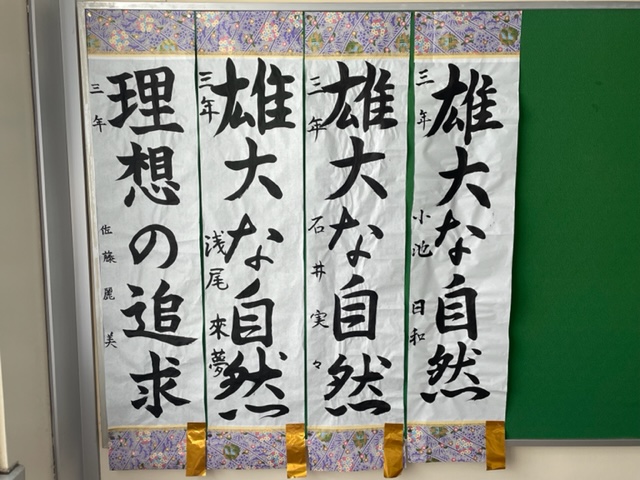 雄大な自然
三年 小池 日和
雄大な自然
三年 石井 実々
雄大な自然
三年 浅尾 來夢
理想の追求
三年 佐藤 麗美